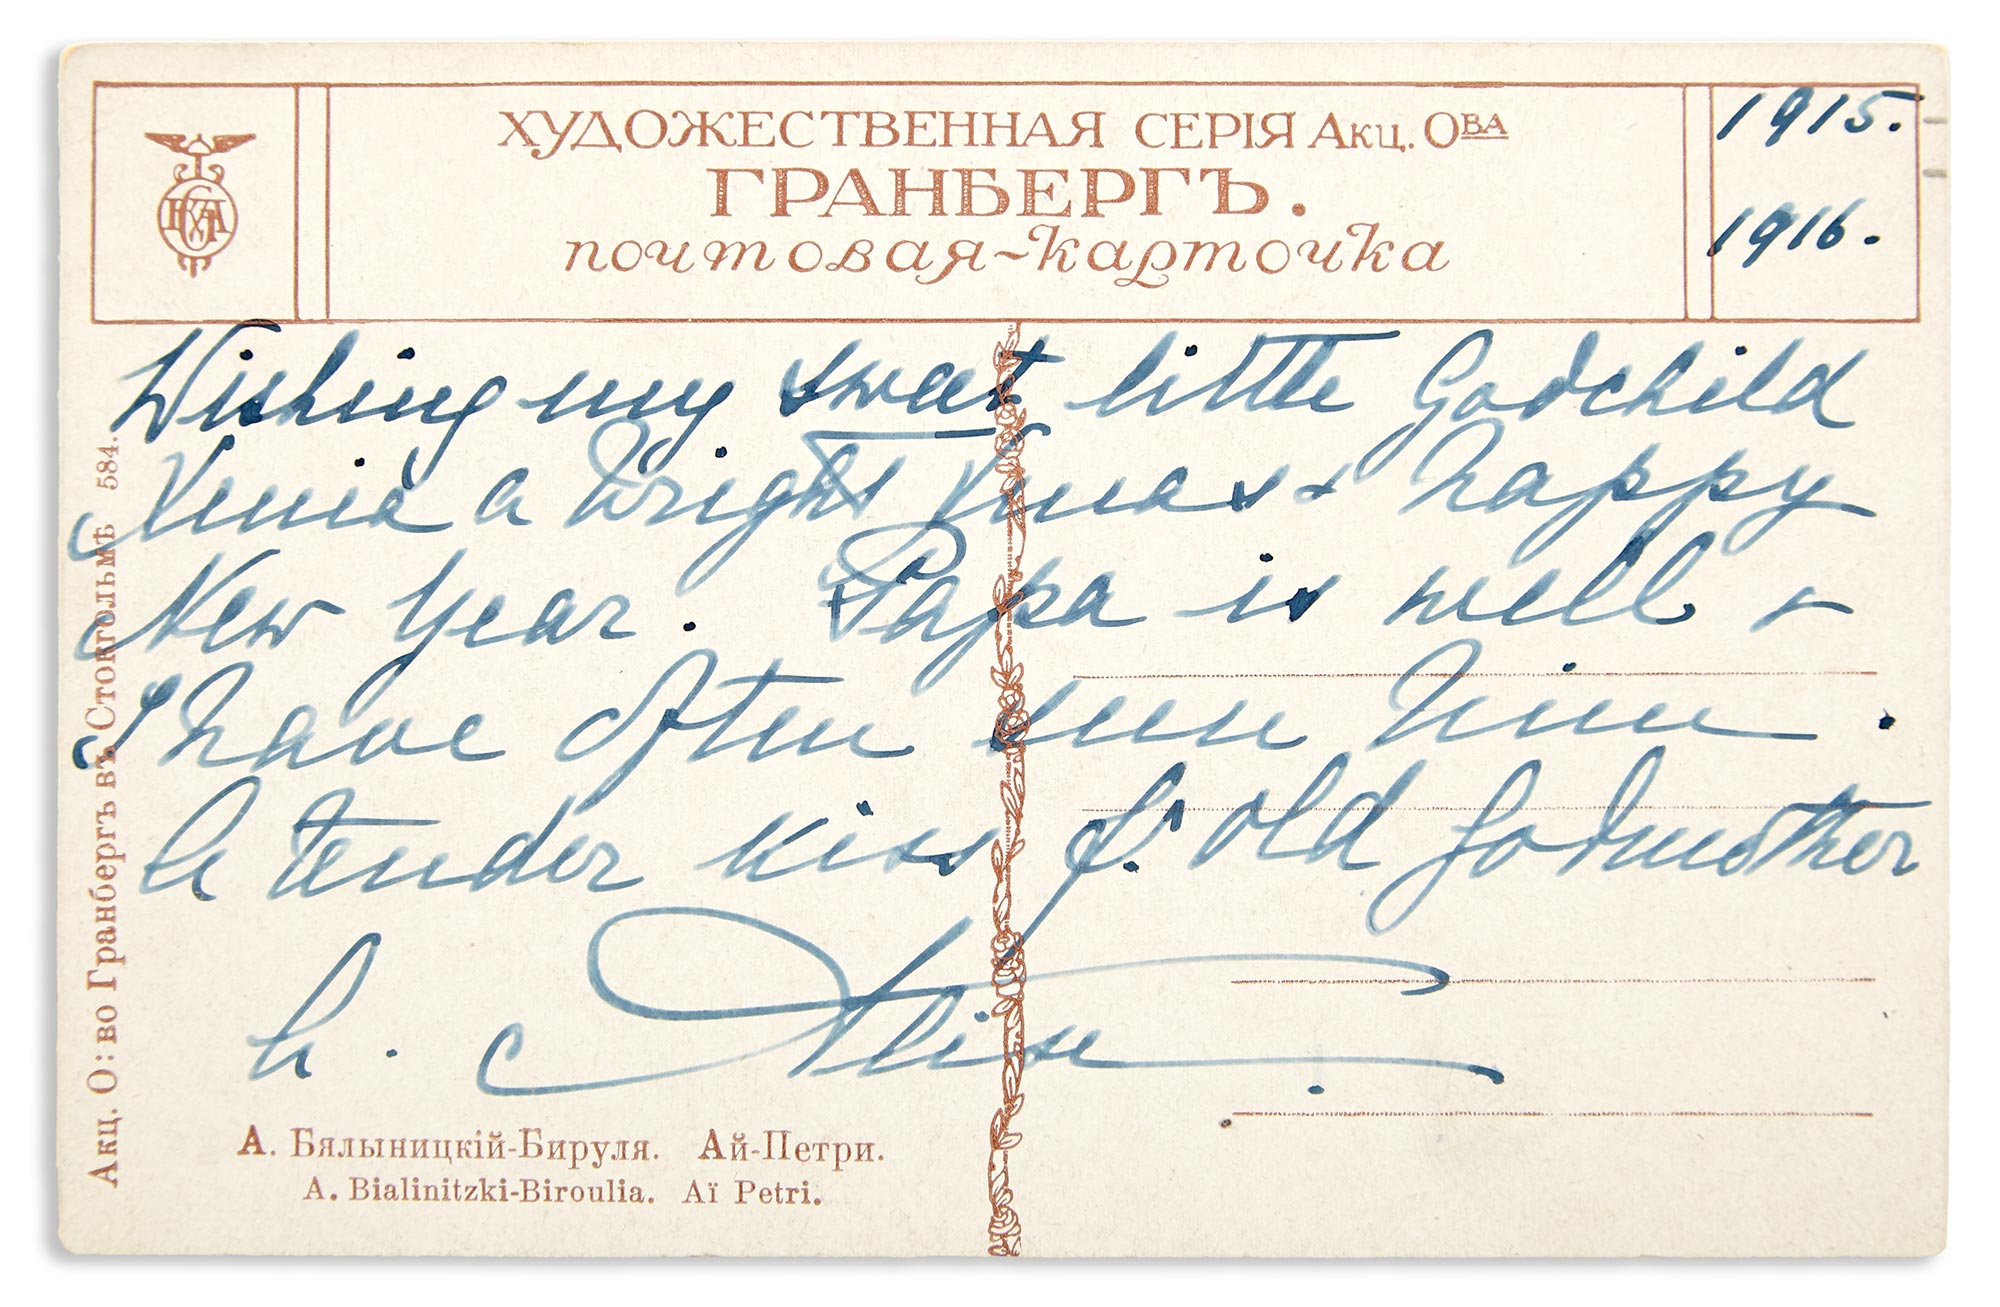 ХУДОЖЕСТВЕННАЯ СЕРІЯ Акц. ОВА
ГРАНБЕРГЪ.
почтовая-карточка
1915.
1916.
Wishing my sweet little Godchild
Xenia a bright Xmas & happy
New Year. Papa is well &
I have often seen him.
A tender kiss fr. old Godmother
A. Alix.
Акц. О: во Гранбергъ въ Стокгольмѣ 584.
А. Бялыницкій-Бируля. Ай-Петри.
A. Bialinitzki-Biroulia. Aï Petri.